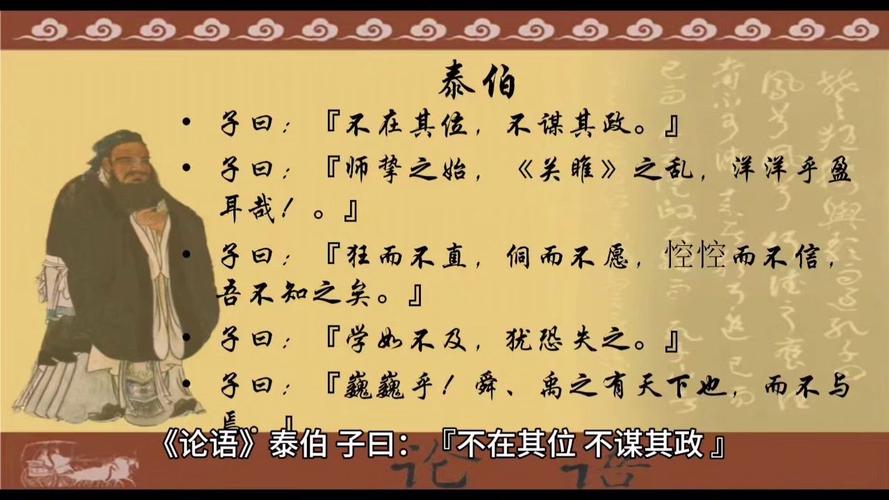 泰伯
• 子曰：『不在其位，不谋其政。』
• 子曰：『师挚之始，《关雎》之乱，洋洋乎盈
耳哉！。』
• 子曰：『狂而不直，侗而不愿，悾悾而不信，
吾不知之矣。』
• 子曰：『学如不及，犹恐失之。』
• 子曰：『巍巍乎！舜、禹之有天下也，而不与
焉。』
《论语》泰伯 子曰：『不在其位 不谋其政 』
论 语